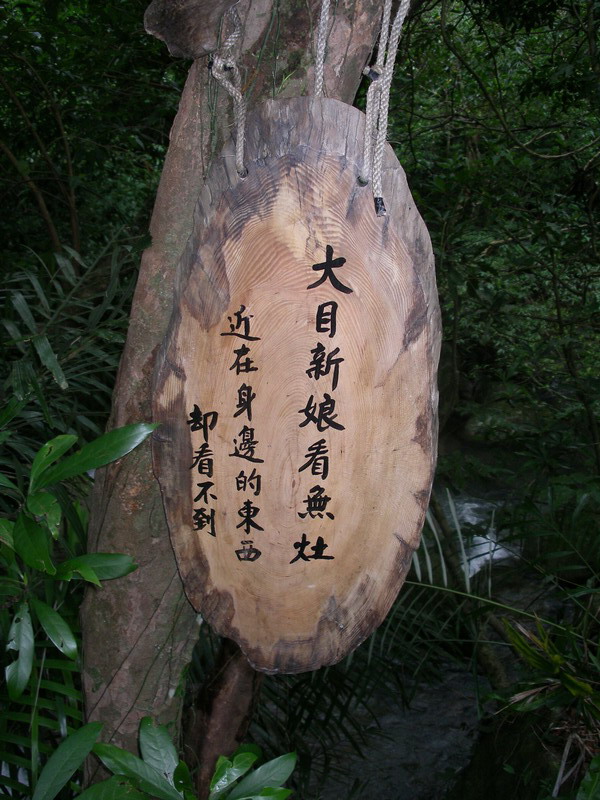 大目新娘看無灶
近在身邊的東西
却看不到